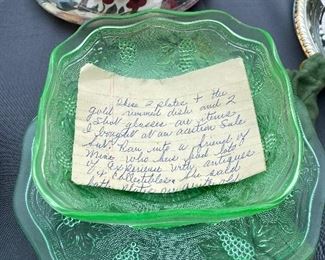 These 2 plates & the
gold rimmed dish and 2
Shot glasses are items
I bought at an auction Sale
but Ran into a friend of
Mine who has had lots
of Experience with antiques
& Collectibles. She said
both plates are